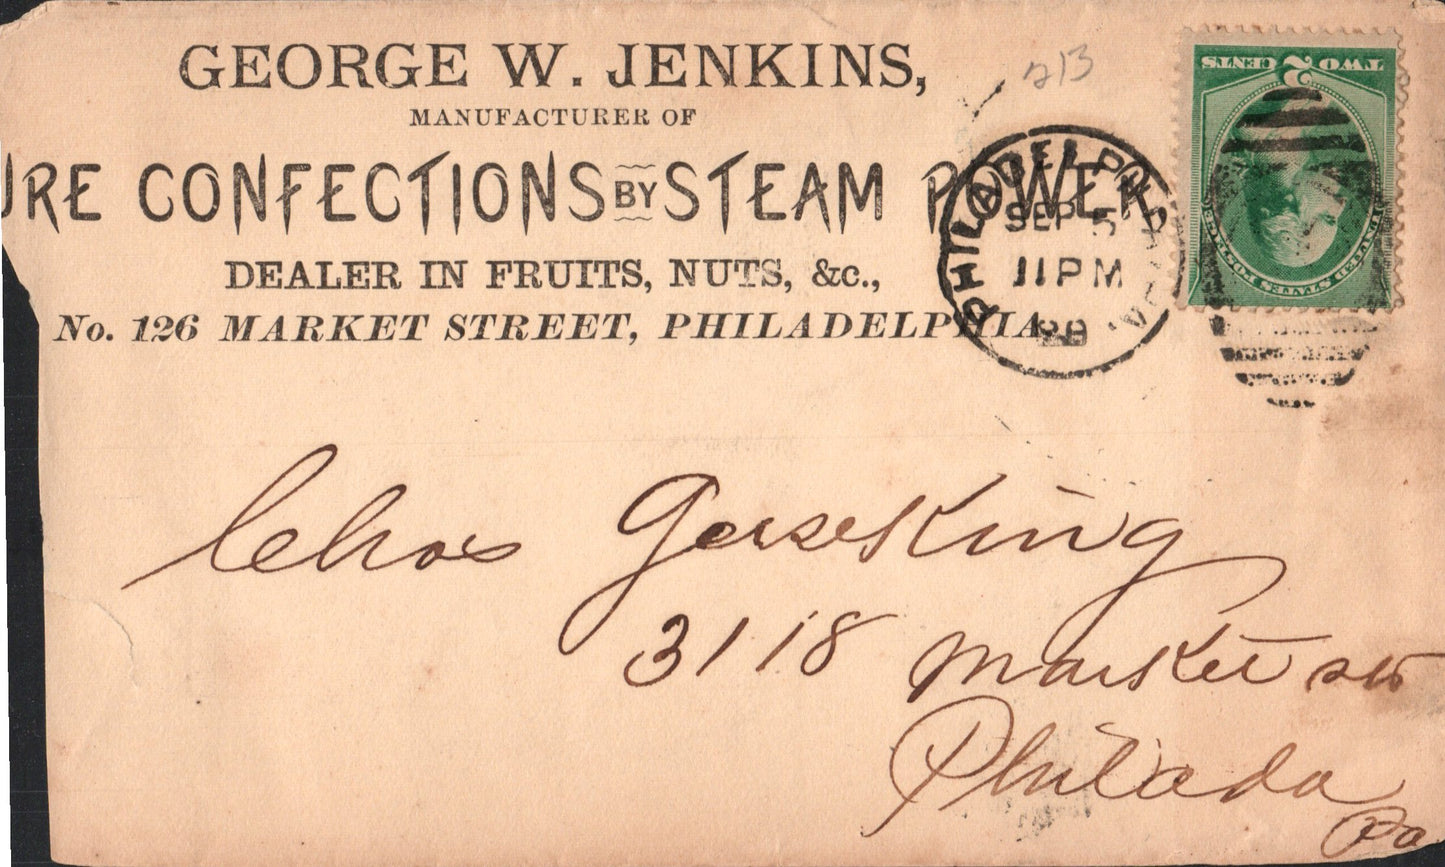 GEORGE W. JENKINS,
MANUFACTURER OF
URE CONFECTIONS BY STEAM POWER
DEALER IN FRUITS, NUTS, &c.,
No. 126 MARKET STREET, PHILADELPHIA
213
PHILADELPHIA, PA.
SEP 5
11 PM
88
TWO 2 CENTS
UNITED STATES POSTAGE
Chas Gerseking
3118 Market st
Philada
Pa